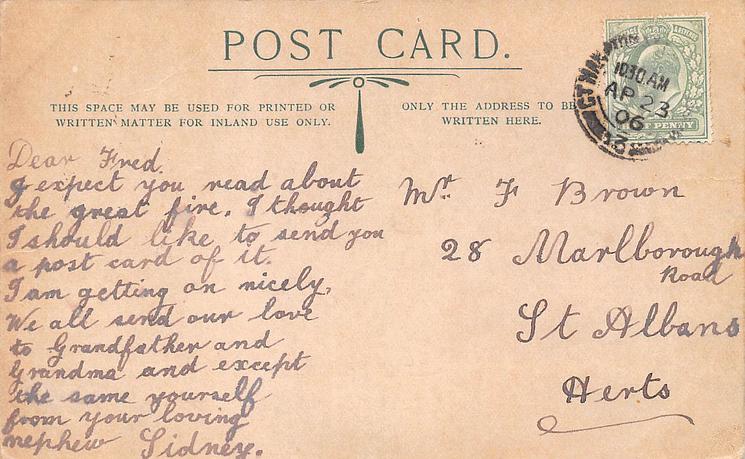 POST CARD.
THIS SPACE MAY BE USED FOR PRINTED OR
WRITTEN MATTER FOR INLAND USE ONLY.
ONLY THE ADDRESS TO BE
WRITTEN HERE.
10 30 AM
AP 23
06
PENNY
Dear Fred.
I expect you read about
the great fire. I thought
I should like to send you
a post card of it.
I am getting on nicely,
We all send our love
to Grandfather and
Grandma and except
the same yourself
from your loving
nephew Sidney.
Mr F Brown
28 Marlborough
Road
St Albans
Herts